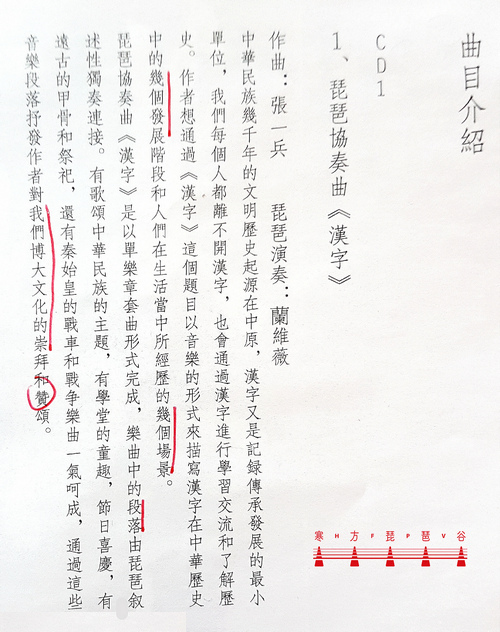 曲目介紹
CD1
1、琵琶協奏曲《漢字》
作曲：張一兵　琵琶演奏：蘭維薇
中華民族幾千年的文明歷史起源在中原，漢字又是記錄傳承發展的最小
單位，我們每個人都離不開漢字，也會通過漢字進行學習交流和了解歷
史。作者想通過《漢字》這個題目以音樂的形式來描寫漢字在中華歷史
中的幾個發展階段和人們在生活當中所經歷的幾個場景。
琵琶協奏曲《漢字》是以單樂章套曲形式完成，樂曲中的段落由琵琶叙
述性獨奏連接。有歌頌中華民族的主題，有學堂的童趣，節日喜慶，有
遠古的甲骨和祭祀，還有秦始皇的戰車和戰争樂曲一氣呵成，通過這些
音樂段落抒發作者對我們博大文化的崇拜和贊頌。
寒H方F琵P琶V谷